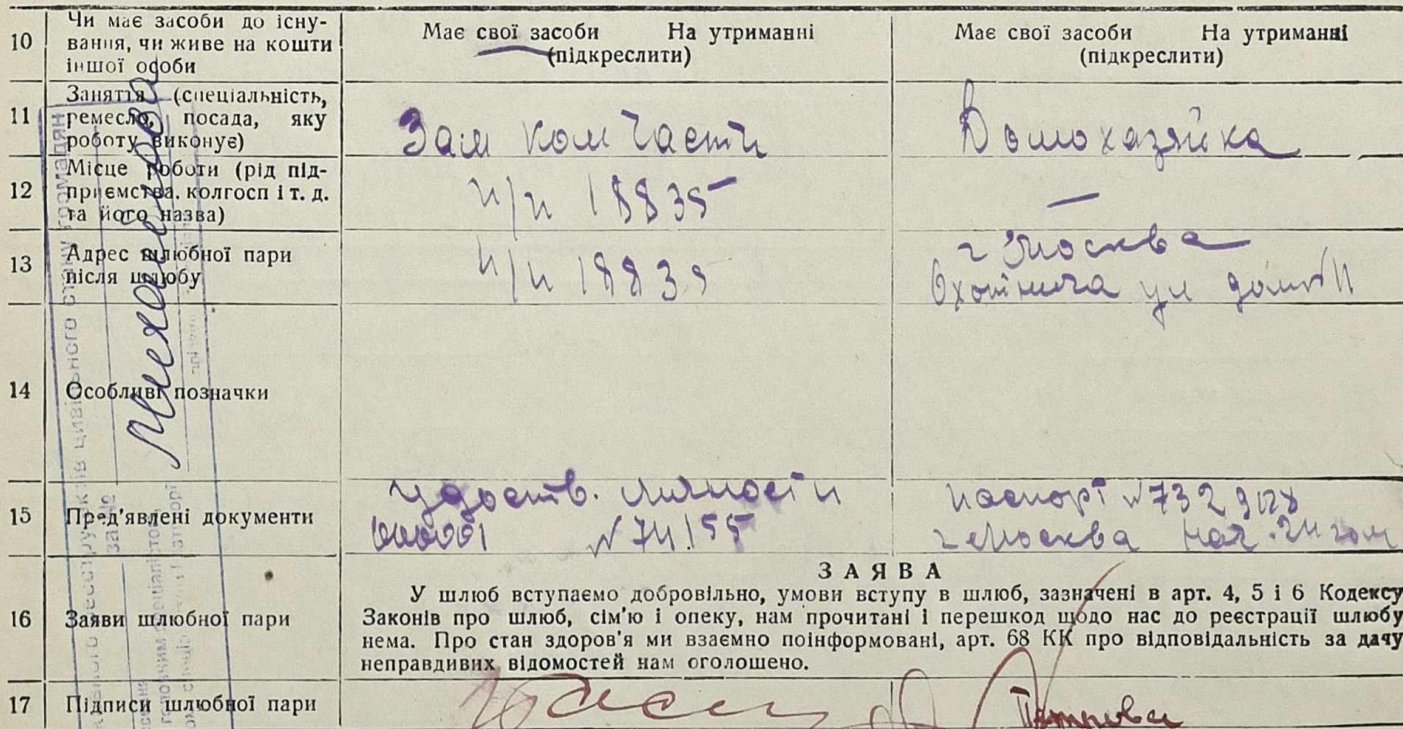 10 Чи має засоби до існу-
вання, чи живе на кошти
іншої особи
Має свої засоби На утриманні
(підкреслити)
Має свої засоби На утриманні
(підкреслити)
11 Заняття (спеціальність,
ремесло, посада, яку
роботу виконує)
Зам ком части
Домохазяйка
12 Місце роботи (рід під-
приємства, колгосп і т. д.
та його назва)
п/п 18835
—
13 Адрес шлюбної пари
після шлюбу
п/п 18835
г Москва
Охотнича ул дом
14 Особливі позначки
15 Пред'явлені документи
удоств. личности
№ 74155
паспорт №
г Москва
16 Заяви шлюбної пари
ЗАЯВА
У шлюб вступаємо добровільно, умови вступу в шлюб, зазначені в арт. 4, 5 і 6 Кодексу
Законів про шлюб, сім'ю і опеку, нам прочитані і перешкод щодо нас до реєстрації шлюбу
нема. Про стан здоров'я ми взаємно поінформовані, арт. 68 КК про відповідальність за дачу
неправдивих відомостей нам оголошено.
17 Підписи шлюбної пари
Петрова
цивільного стану громадян